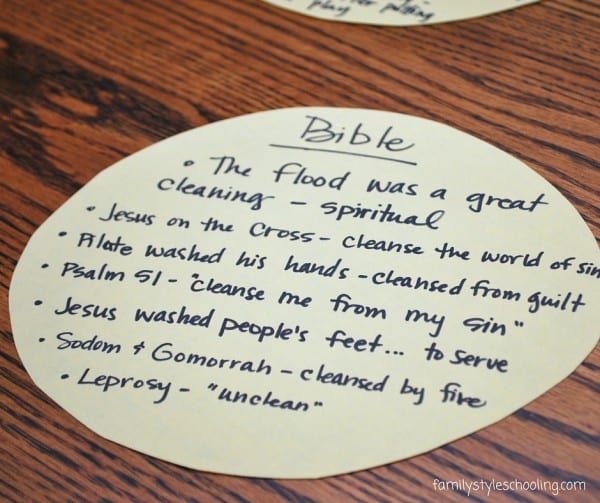 play
Bible
• The flood was a great
cleaning - spiritual
• Jesus on the cross - cleanse the world of sin
• Pilate washed his hands - cleansed from guilt
• Psalm 51 - "cleanse me from my sin"
• Jesus washed people's feet... to serve
• Sodom & Gomorrah - cleansed by fire
• Leprosy - "unclean"
familystyleschooling.com